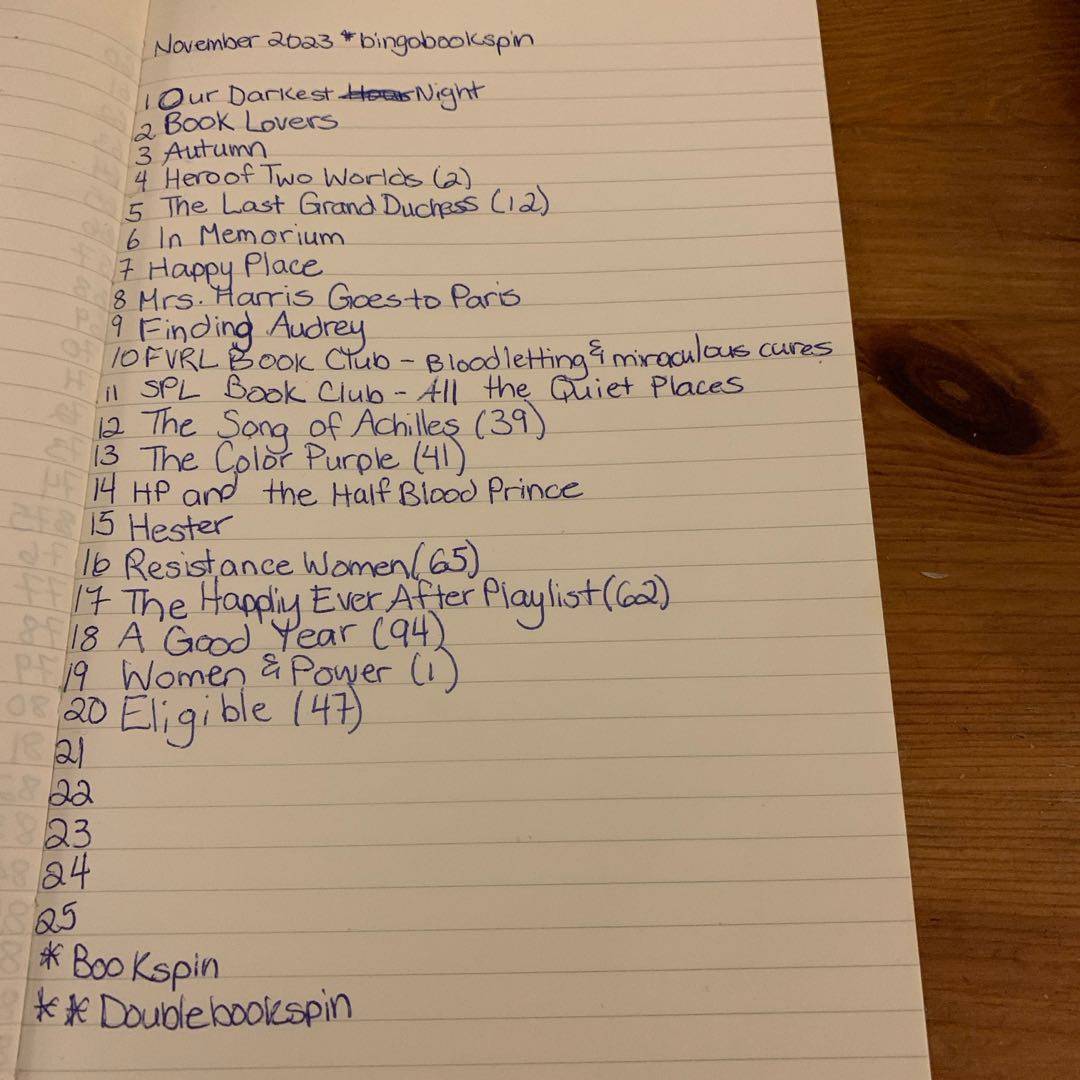 November 2023 *bingobookspin
1 Our Darkest Hour Night
2 Book Lovers
3 Autumn
4 Hero of Two Worlds (2)
5 The Last Grand Duchess (12)
6 In Memorium
7 Happy Place
8 Mrs. Harris Goes to Paris
9 Finding Audrey
10 FVRL Book Club - Bloodletting & miraculous cures
11 SPL Book Club - All the Quiet Places
12 The Song of Achilles (39)
13 The Color Purple (41)
14 HP and the Half Blood Prince
15 Hester
16 Resistance Women (65)
17 The Happliy Ever After Playlist (62)
18 A Good Year (94)
19 Women & Power (1)
20 Eligible (47)
21
22
23
24
25
* Bookspin
** Doublebookspin